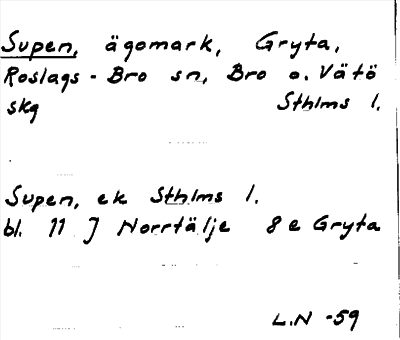 Supen, ägomark, Gryta,
Roslags-Bro sn, Bro o. Vätö
skg Sthlms l.
Supen, ek Sthlms l.
bl. 11 J Norrtälje 8e Gryta
L.N -59